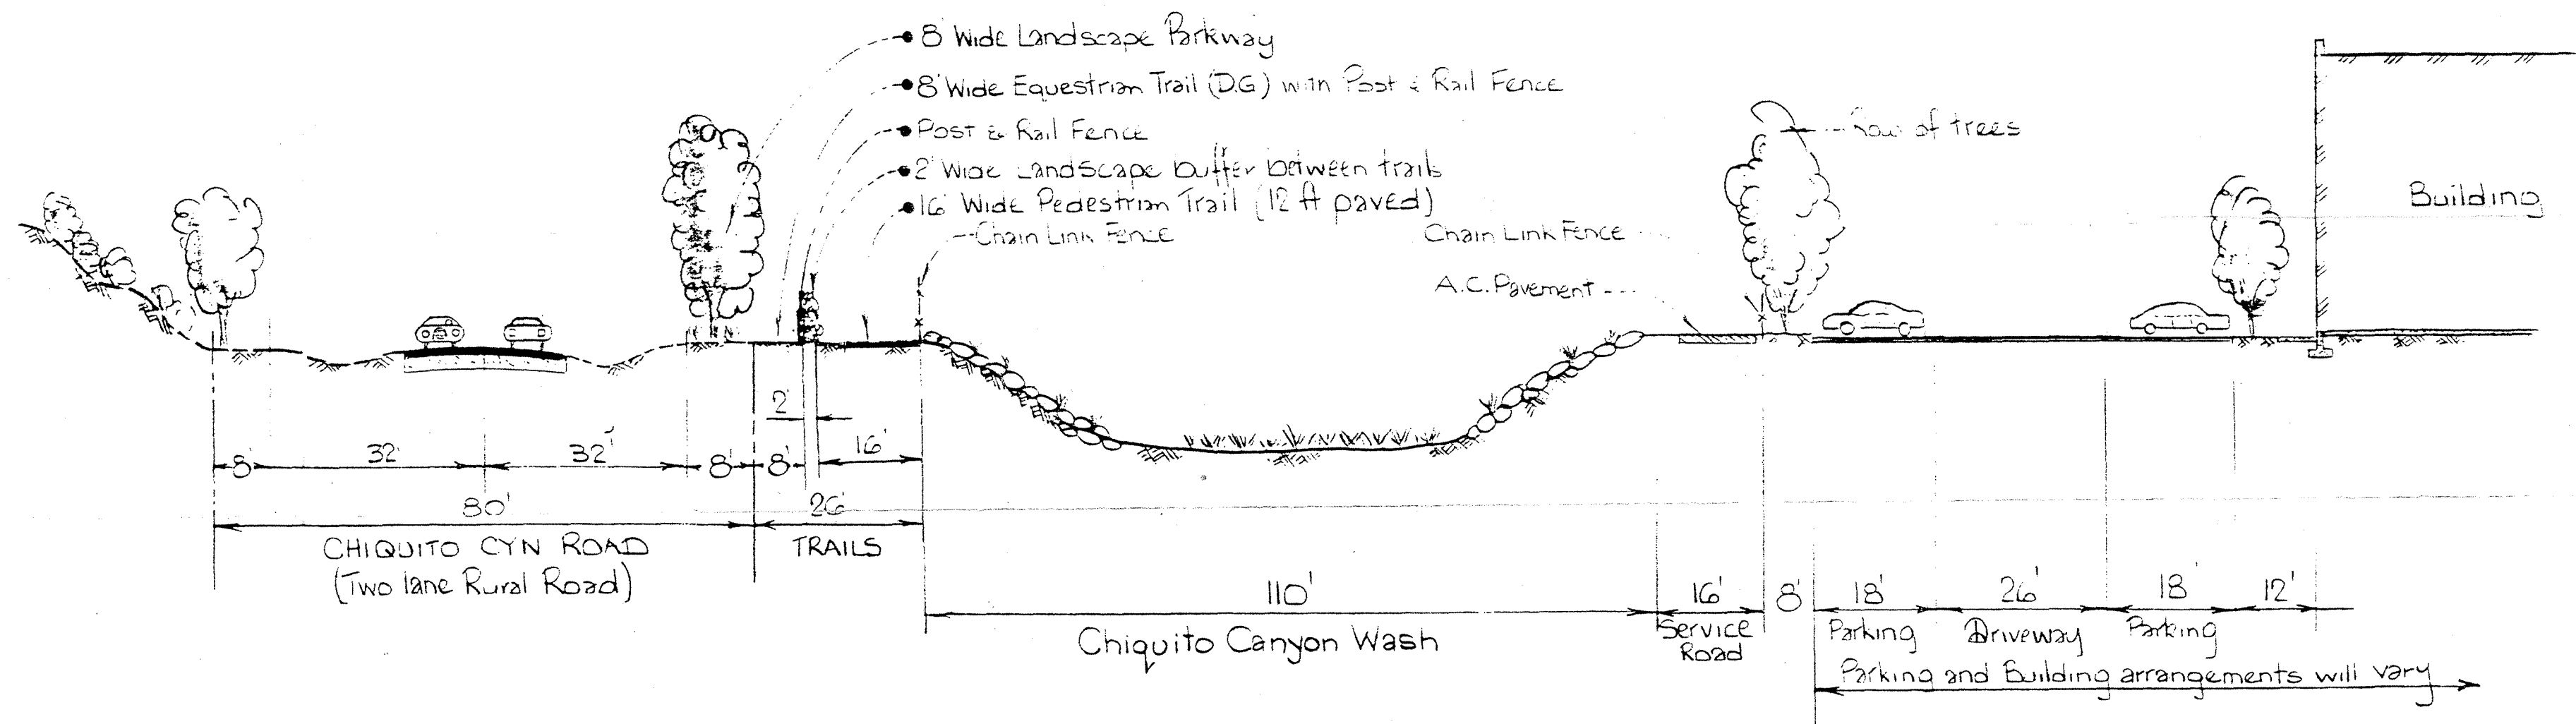 8' Wide Landscape Parkway
8' Wide Equestrian Trail (D.G) with Post & Rail Fence
Post & Rail Fence
2' Wide Landscape buffer between trails
16' Wide Pedestrian Trail (12 ft paved)
Chain Link Fence
Chain Link Fence
A.C. Pavement
Row of trees
Building
2'
8' 32' 32' 8' 8' 16'
80' 26'
CHIQUITO CYN ROAD
(Two lane Rural Road)
TRAILS
110' 16' 8' 18' 26' 18' 12'
Chiquito Canyon Wash
Service
Road
Parking Driveway Parking
Parking and Building arrangements will vary